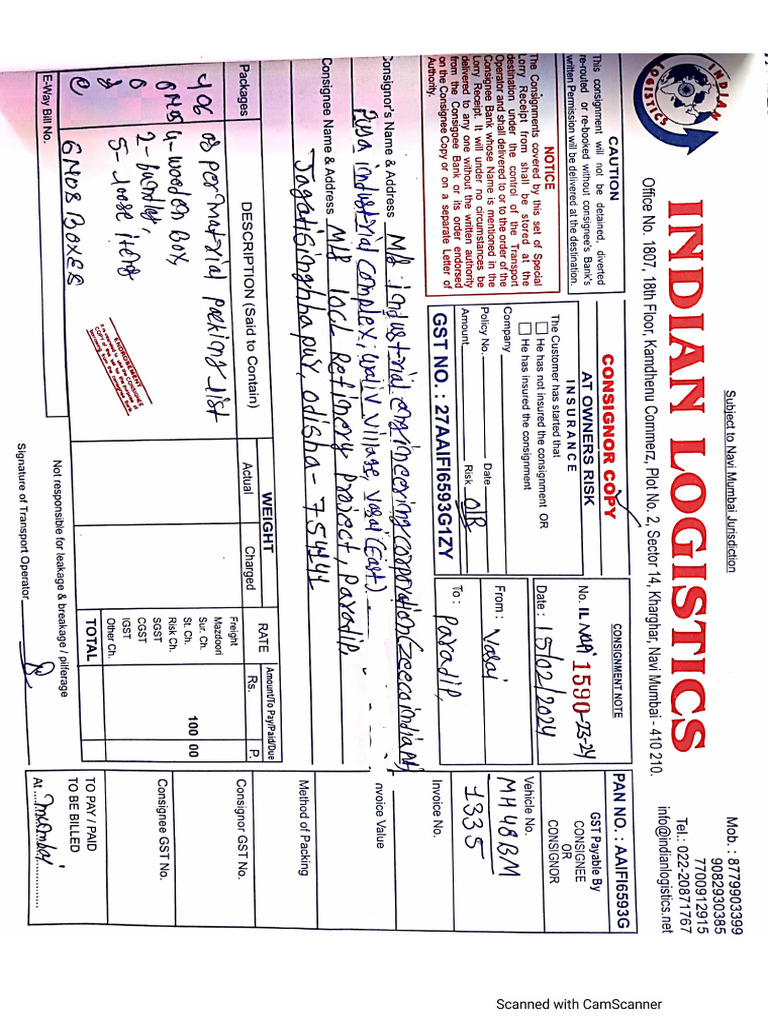 Subject to Navi Mumbai Jurisdiction
Mob. : 8779903399
9082930385
7700912915
Tel.: 022-20871767
info@indianlogistics.net
INDIAN LOGISTICS
INDIAN LOGISTICS
Office No. 1807, 18th Floor, Kamdhenu Commerz, Plot No. 2, Sector 14, Kharghar, Navi Mumbai - 410 210.
CAUTION
This consignment will not be detained, diverted
re-routed or re-booked without consignee's Bank's
written Permission will be delivered at the destination.
NOTICE
The Consignments covered by this set of Special
Lorry Receipt from shall be stored at the
destination under the control of the Transport
Operator and shall delivered to or to the order of the
Consignee Bank whose Name is mentioned in the
Lorry Receipt. It will under no circumstances be
delivered to any one without the written authority
from the Consigoee Bank or its order endorsed
on the Consignee Copy or on a separate Letter of
Authority.
CONSIGNOR COPY
AT OWNERS RISK
INSURANCE
The Customer has started that
He has not insured the consignment OR
He has insured the consignment
Company
Policy No. Date
Amount Risk O/R
GST NO. : 27AAIFI6593G1ZY
CONSIGNMENT NOTE
No. IL 1590-23-24
Date : 15/02/2024
From : Vasai
To : Paradip,
PAN NO. : AAIFI6593G
GST Payable By
CONSIGNEE
OR
CONSIGNOR
Vehicle No.
MH48BM
1335
Consignor's Name & Address M/s industrial engineering corporation (zeeco india pvt
industrial complex, waliv village, vasai (East)
Consignee Name & Address M/s Iocl Refinery Project, Paradip,
Jagatisinghhapur, odisha - 754141
Invoice No.
Invoice Value
Method of Packing
Consignor GST No.
Consignee GST No.
TO PAY / PAID
TO BE BILLED
At mumbai
Packages
DESCRIPTION (Said to Contain)
WEIGHT
Actual
Charged
RATE
Amount/To Pay/Paid/Due
Rs. P.
as per matrial packing list
4-wooden box,
2-bundles,
5-loose items
6 NOS BOXES
ENDORSEMENT
Freight
Mazdoori
Sur. Ch.
St. Ch. 100 00
Risk Ch.
SGST
CGST
IGST
Other Ch.
TOTAL
E-Way Bill No.
Not responsible for leakage & breakage / pilferage
Signature of Transport Operator
Scanned with CamScanner